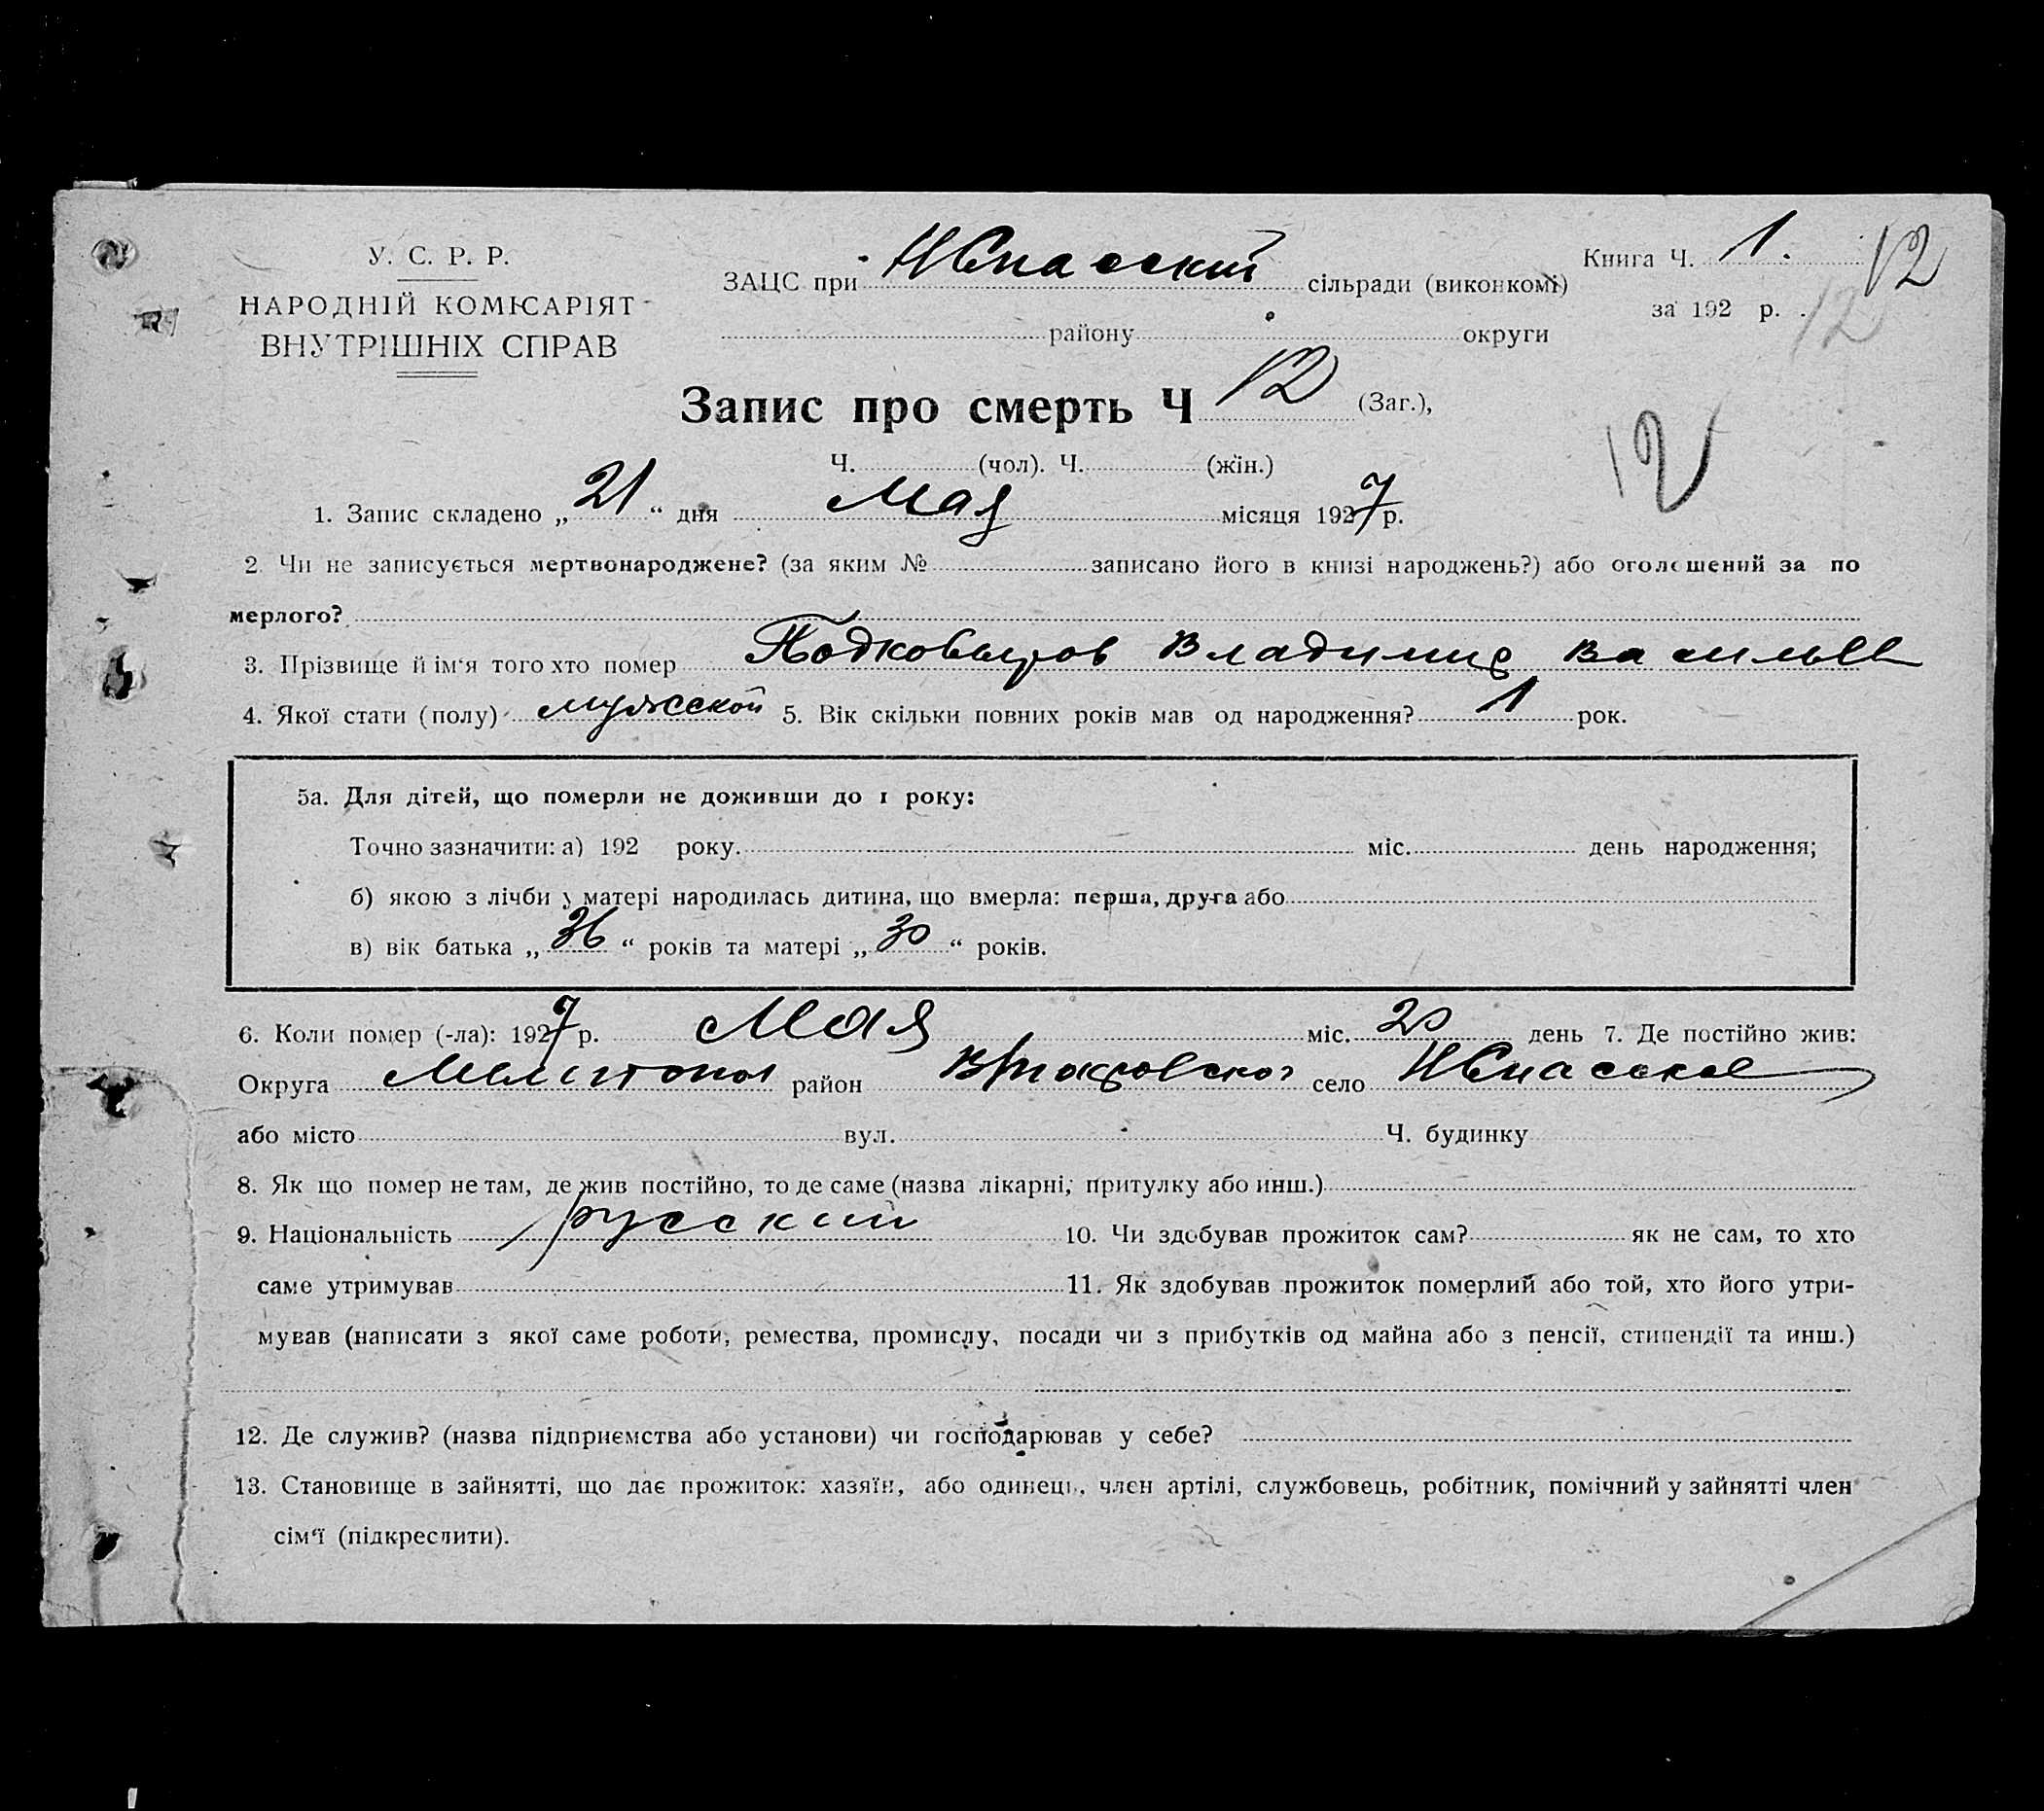 У. С. Р. Р.
НАРОДНІЙ КОМІСАРІЯТ
ВНУТРІШНІХ СПРАВ
ЗАЦС при НСпасский сільради (виконкомі)
району округи
Книга Ч. 1.
за 192 р.
12
12
Запис про смерть Ч 12 (Заг.),
12
Ч. (чол). Ч. (жін.)
1. Запис складено „21“ дня Мая місяця 1927 р.
2. Чи не записується мертвонароджене? (за яким № записано його в книзі народжень?) або оголошений за по
мерлого?
3. Прізвище й ім‘я того хто помер Подковыров Владимир Васильев
4. Якої стати (полу) мужской 5. Вік скільки повних років мав од народження? 1 рок.
5а. Для дітей, що померли не доживши до 1 року:
Точно зазначити: а) 192 року. міс. день народження;
б) якою з лічби у матері народилась дитина, що вмерла: перша, друга або
в) вік батька „36“ років та матері „30“ років.
6. Коли помер (-ла): 1927 р. Мая міс. 20 день 7. Де постійно жив:
Округа Мелитопол район село НСпасское
або місто вул. Ч. будинку
8. Як що помер не там, де жив постійно, то де саме (назва лікарні, притулку або инш.)
9. Національність русский 10. Чи здобував прожиток сам? як не сам, то хто
саме утримував 11. Як здобував прожиток померлий або той, хто його утри-
мував (написати з якої саме роботи, ремества, промислу, посади чи з прибутків од майна або з пенсії, стипендії та инш.)
12. Де служив? (назва підприємства або установи) чи господарював у себе?
13. Становище в зайнятті, що дає прожиток: хазяїн, або одинець, член артілі, службовець, робітник, помічний у зайнятті член
сім‘ї (підкреслити).